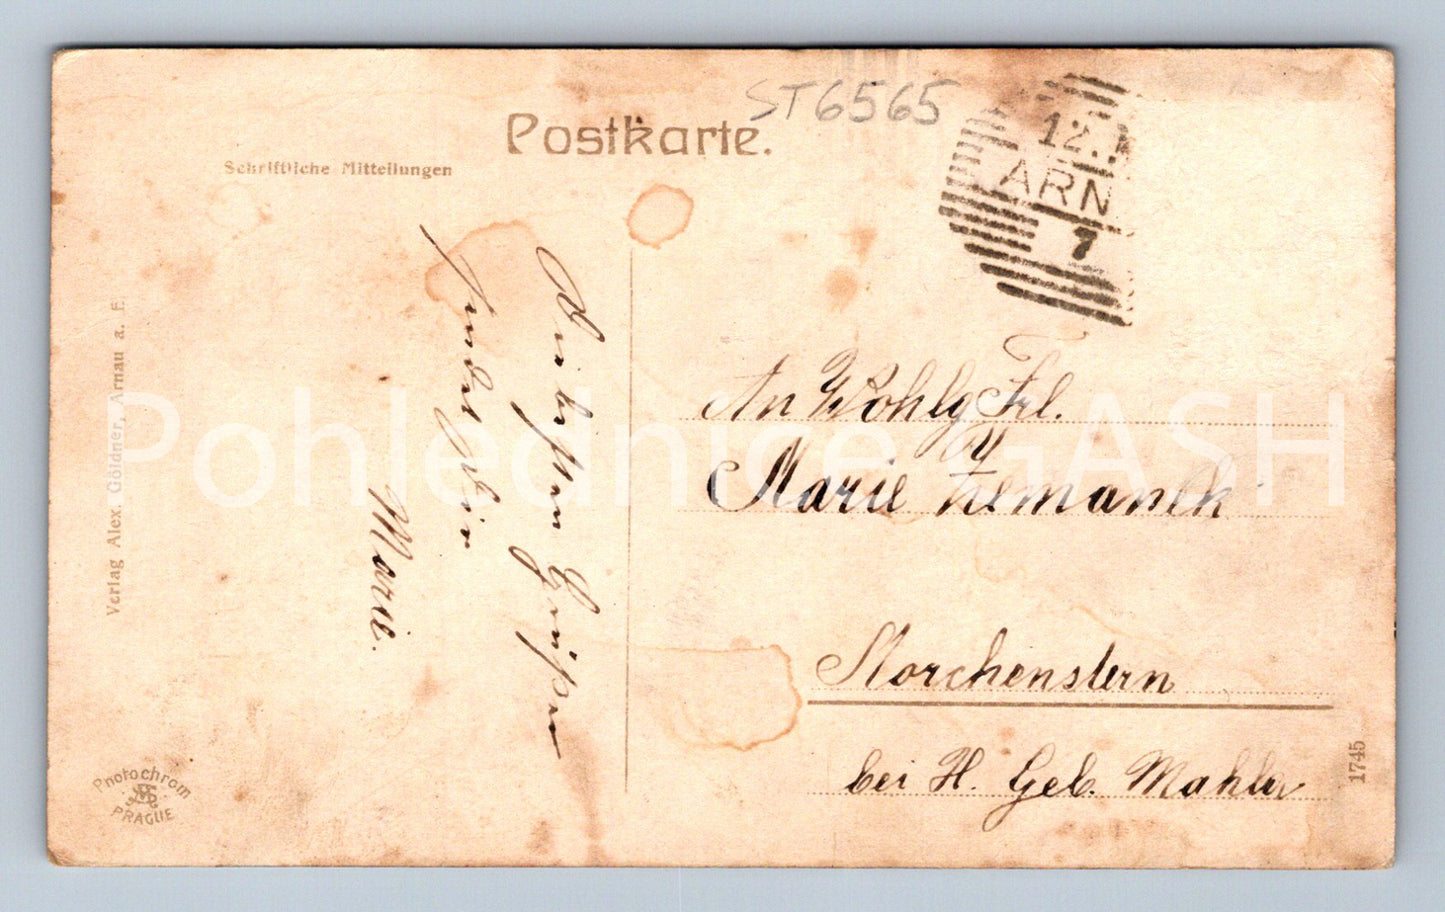 Postkarte.
ST6565
Schriftliche Mitteilungen
12.
ARN
7
Die besten Grüße
sendet Ihnen
Marie.
An Wohlg Frl.
Marie Zemanek
Morchenstern
bei H. Geb. Mahler
Verlag Alex. Göldner, Arnau a. E.
Photochrom
PRAGUE
1745
Pohlednice GASH